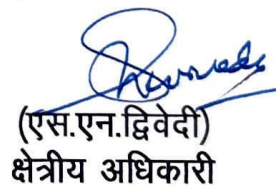 (एस.एन.द्विवेदी)
क्षेत्रीय अधिकारी